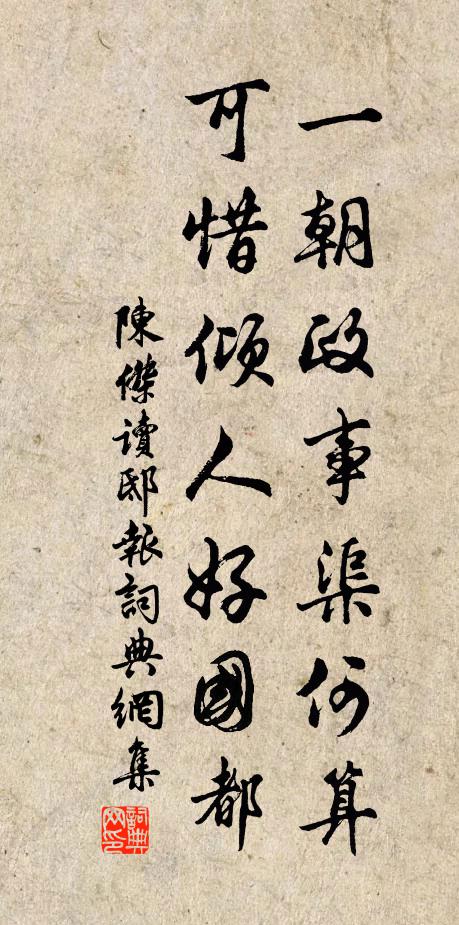 一朝政事渠何算
可惜傾人好國都
陳傑讀邸報詞典網集
詞典网印